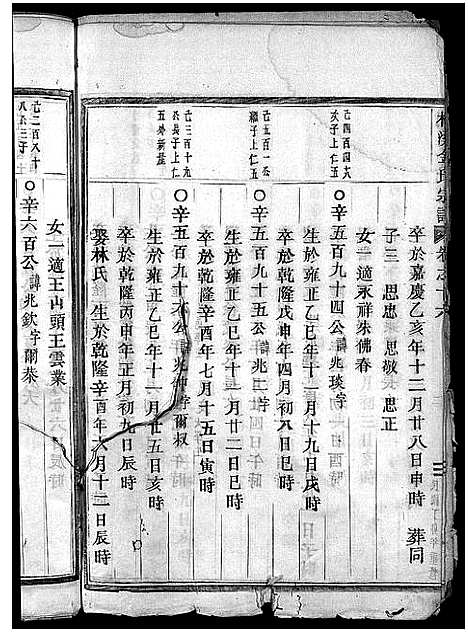 氏宗譜 卷之十六
卒於嘉慶乙亥年十二月廿八日申時 葬同
子三 思忠 思敬 思正
女一適永祥朱佛春
行四百四大
次子上仁五
〇辛五百九十四公諱兆琰字
生於雍正乙巳年十一月十九日戌時
卒於乾隆戊申年四月初八日巳時
行五百一公
繼子上仁五
〇辛五百九十五公諱兆二字
生於雍正乙巳年十一月廿二日巳時
卒於乾隆辛酉年七月十五日寅時
行三百十九
公長子上仁
五外新屋
〇辛五百九十六公諱兆紳字爾叔
生於雍正乙巳年十一月廿五日亥時
卒於乾隆丙申年正月初九日辰時
娶林氏 生於乾隆辛酉年六月十二日辰時
女一適王山頭王雲業
〇辛六百公諱兆欽字爾恭